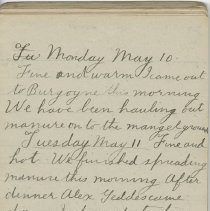 Fri Monday May 10.
Fine and warm I came out
to Burgoyne this morning
We have been hauling out
manure on to the mangel ground
Tuesday May 11 Fine and
hot. We finished spreading
manure this morning After
dinner Alex Geddes came